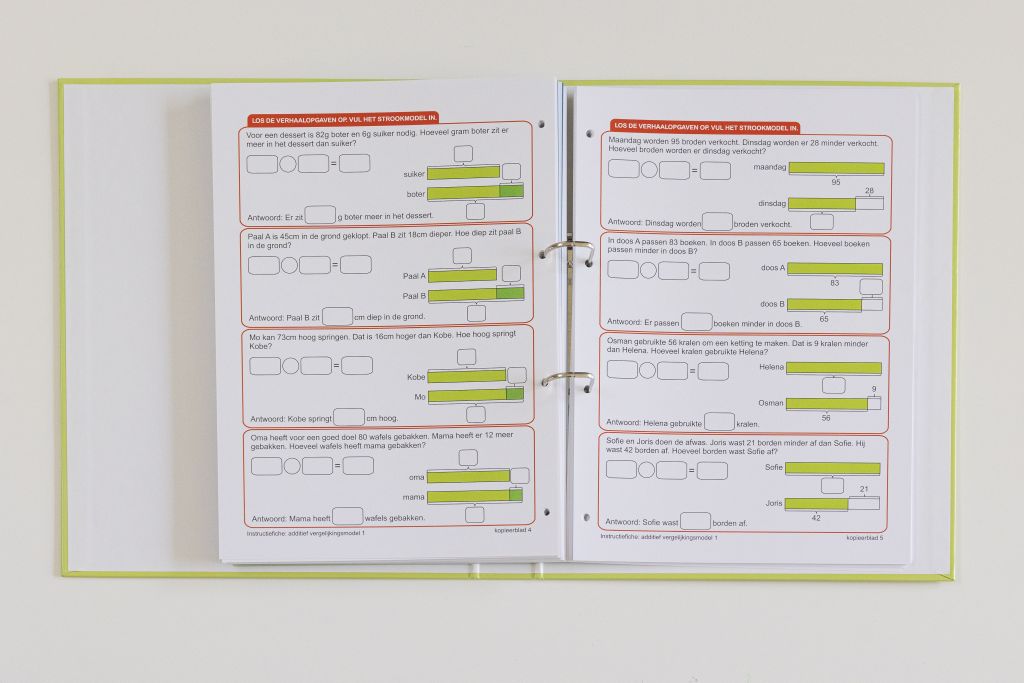 LOS DE VERHAALOPGAVEN OP. VUL HET STROOKMODEL IN.
Voor een dessert is 82g boter en 6g suiker nodig. Hoeveel gram boter zit er
meer in het dessert dan suiker?
=
suiker
boter
Antwoord: Er zit g boter meer in het dessert.
Paal A is 45cm in de grond geklopt. Paal B zit 18cm dieper. Hoe diep zit paal B
in de grond?
=
Paal A
Paal B
Antwoord: Paal B zit cm diep in de grond.
Mo kan 73cm hoog springen. Dat is 16cm hoger dan Kobe. Hoe hoog springt
Kobe?
=
Kobe
Mo
Antwoord: Kobe springt cm hoog.
Oma heeft voor een goed doel 80 wafels gebakken. Mama heeft er 12 meer
gebakken. Hoeveel wafels heeft mama gebakken?
=
oma
mama
Antwoord: Mama heeft wafels gebakken.
Instructiefiche: additief vergelijkingsmodel 1
kopieerblad 4
LOS DE VERHAALOPGAVEN OP. VUL HET STROOKMODEL IN.
Maandag worden 95 broden verkocht. Dinsdag worden er 28 minder verkocht.
Hoeveel broden worden er dinsdag verkocht?
=
maandag
95
28
dinsdag
Antwoord: Dinsdag worden broden verkocht.
In doos A passen 83 boeken. In doos B passen 65 boeken. Hoeveel boeken
passen minder in doos B?
=
doos A
83
doos B
65
Antwoord: Er passen boeken minder in doos B.
Osman gebruikte 56 kralen om een ketting te maken. Dat is 9 kralen minder
dan Helena. Hoeveel kralen gebruikte Helena?
=
Helena
9
Osman
56
Antwoord: Helena gebruikte kralen.
Sofie en Joris doen de afwas. Joris wast 21 borden minder af dan Sofie. Hij
wast 42 borden af. Hoeveel borden wast Sofie af?
=
Sofie
21
Joris
42
Antwoord: Sofie wast borden af.
Instructiefiche: additief vergelijkingsmodel 1
kopieerblad 5